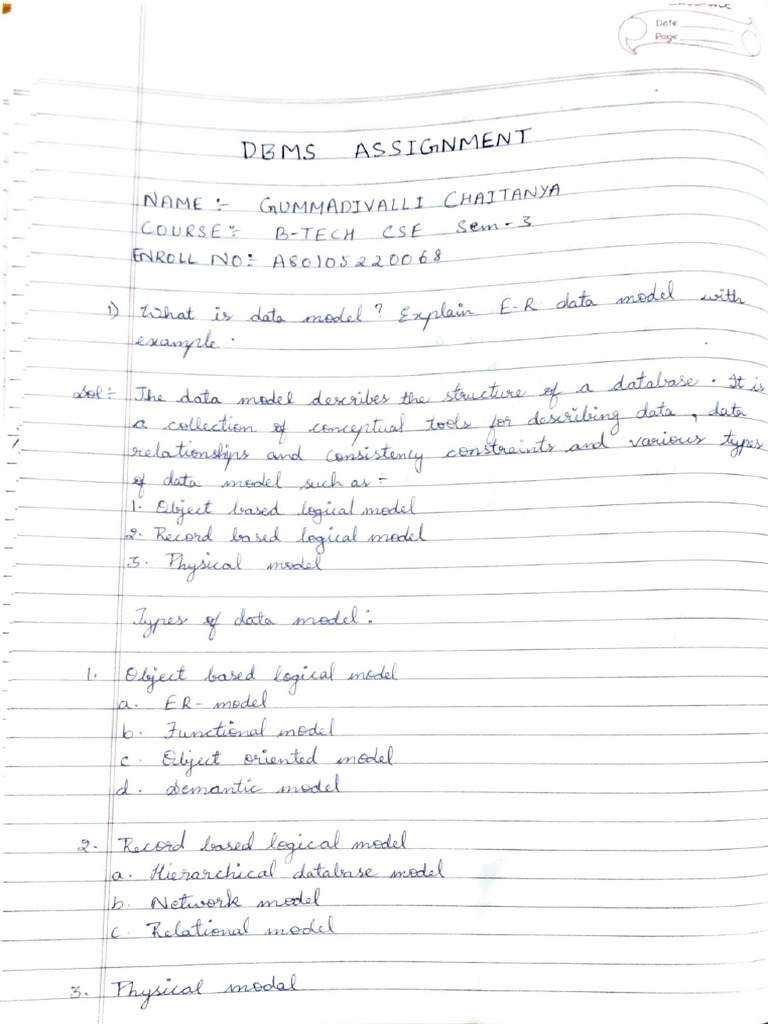 Date
Page
DBMS ASSIGNMENT
NAME :- GUMMADIVALLI CHAITANYA
COURSE :- B-TECH CSE Sem-3
ENROLL NO:- A80105220068
1) What is data model? Explain E-R data model with
example.
Sol:- The data model describes the structure of a database. It is
a collection of conceptual tools for describing data, data
relationships and consistency constraints and various types
of data model such as :-
1. Object based logical model
2. Record based logical model
3. Physical model
Types of data model:
1. Object based logical model
a. ER-model
b. Functional model
c. Object oriented model
d. Semantic model
2. Record based logical model
a. Hierarchical database model
b. Network model
c. Relational model
3. Physical modal